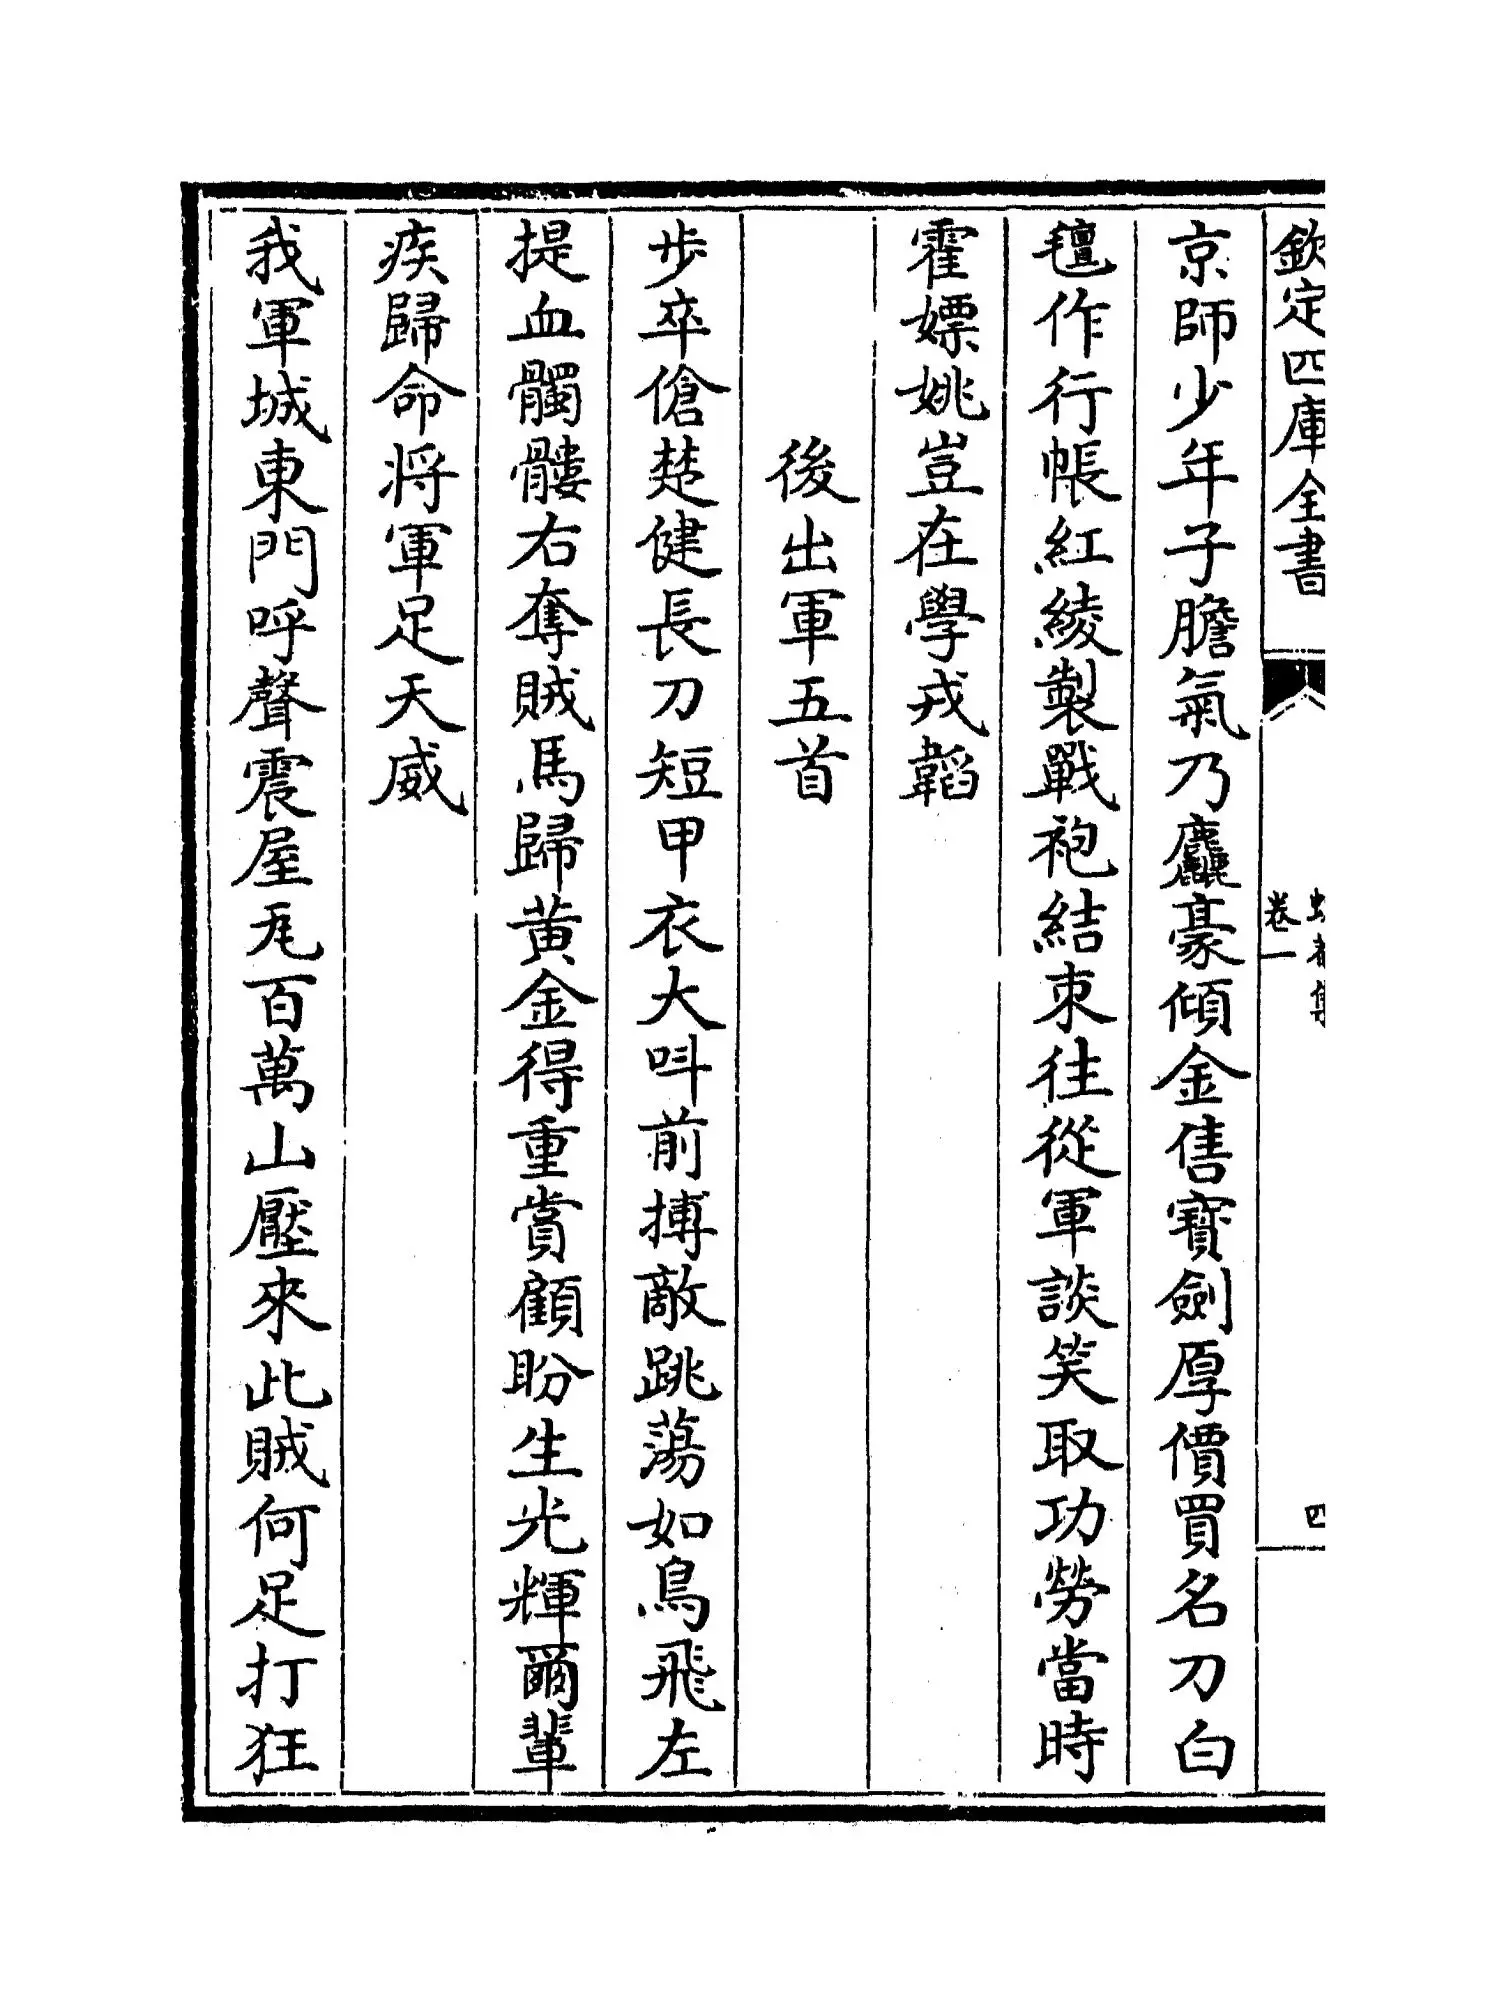 欽定四庫全書
卷一
四
京師少年子膽氣乃麤豪傾金售寶劍厚價買名刀白
氊作行帳紅綾製戰袍結束往從軍談笑取功勞當時
霍嫖姚豈在學戎韜
後出軍五首
步卒傖楚健長刀短甲衣大呌前搏敵跳蕩如鳥飛左
提血髑髏右奪賊馬歸黄金得重賞顧盼生光輝爾輩
疾歸命將軍足天威
我軍城東門呼聲震屋瓦百萬山壓來此賊何足打狂